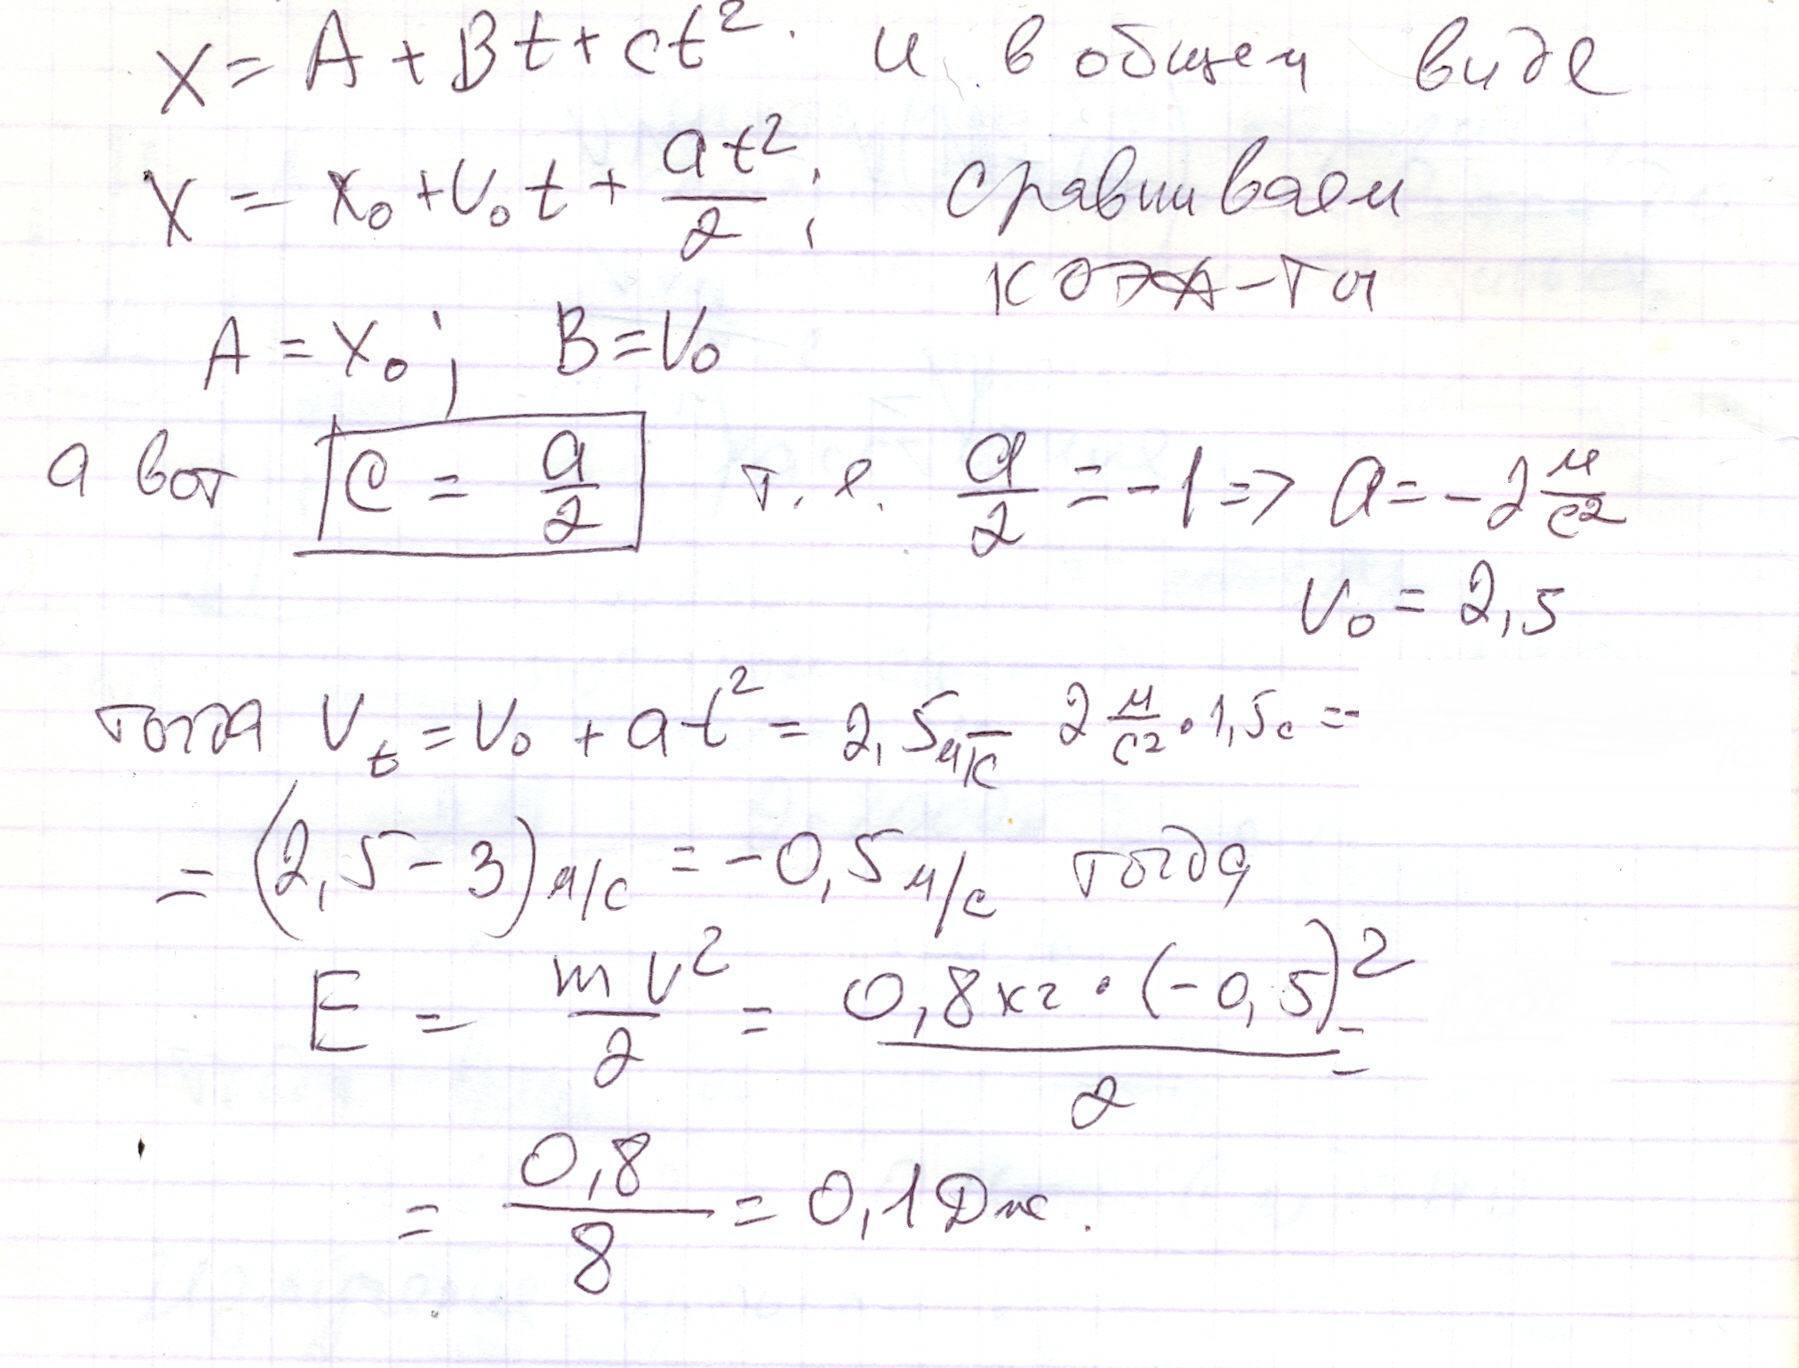 x = A + Bt + ct². и в общем виде
x = x₀ + v₀t + at²/2; сравниваем
коэф-ты
A = x₀; B = v₀
а вот c = a/2 т.е. a/2 = -1 => a = -2 м/с²
v₀ = 2,5
тогда v_t = v₀ + at² = 2,5 м/с - 2 м/с² · 1,5 с =
= (2,5 - 3) м/с = -0,5 м/с тогда
E = mv²/2 = 0,8 кг · (-0,5)²/2 =
= 0,8/8 = 0,1 Дж.